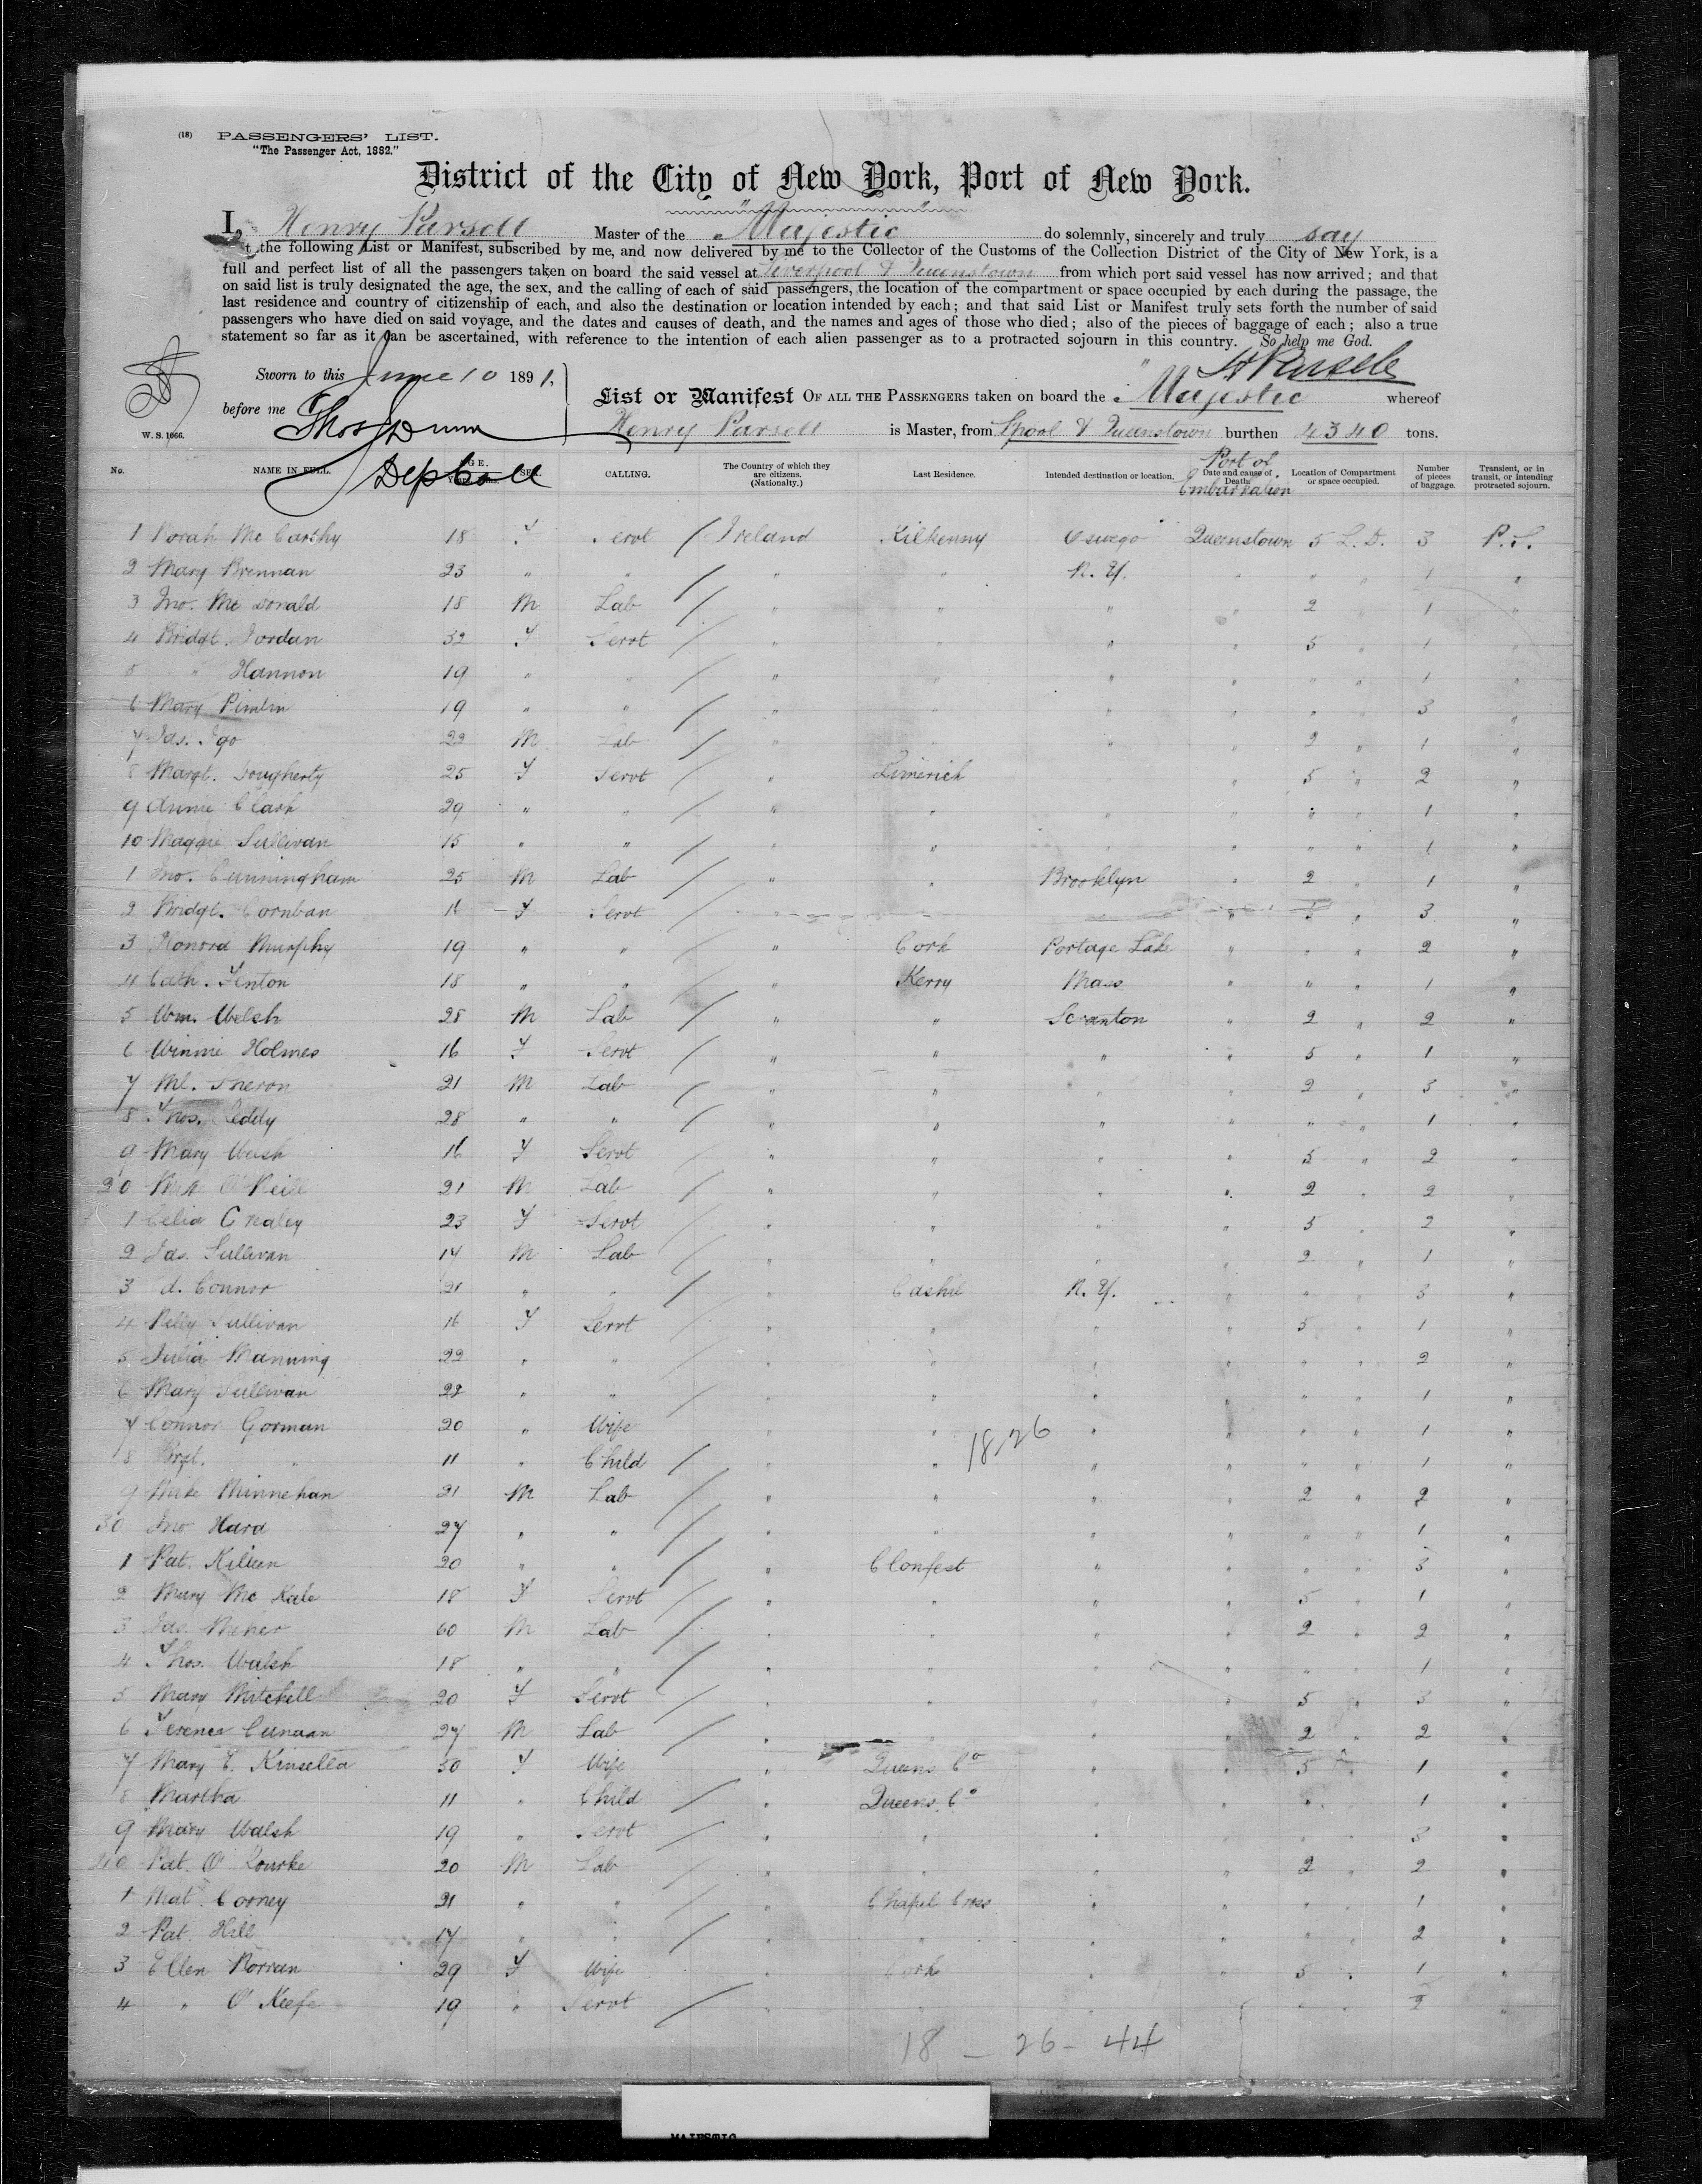 (18) PASSENGERS' LIST.
"The Passenger Act, 1882."
District of the City of New York, Port of New York.
I, Henry Parsell Master of the Majestic do solemnly, sincerely and truly say
t the following List or Manifest, subscribed by me, and now delivered by me to the Collector of the Customs of the Collection District of the City of New York, is a
full and perfect list of all the passengers taken on board the said vessel at Liverpool & Queenstown from which port said vessel has now arrived; and that
on said list is truly designated the age, the sex, and the calling of each of said passengers, the location of the compartment or space occupied by each during the passage, the
last residence and country of citizenship of each, and also the destination or location intended by each; and that said List or Manifest truly sets forth the number of said
passengers who have died on said voyage, and the dates and causes of death, and the names and ages of those who died; also of the pieces of baggage of each; also a true
statement so far as it can be ascertained, with reference to the intention of each alien passenger as to a protracted sojourn in this country. So help me God.
H Parsell
Sworn to this June 10 1891,
before me Thos J Dunn
Dep Coll
W. S. 1666.
List or Manifest OF ALL THE PASSENGERS taken on board the Majestic whereof
Henry Parsell is Master, from Lpool & Queenstown burthen 4340 tons.
No. NAME IN FULL. AGE. SEX. CALLING. The Country of which they are citizens. (Nationality.) Last Residence. Intended destination or location. Port of Embarkation Date and cause of Death. Location of Compartment or space occupied. Number of pieces of baggage. Transient, or in transit, or intending protracted sojourn.
1 Norah Mc Carthy 18 F Servt / Ireland Kilkenny Oswego Queenstown 5 L. D. 3 P. S.
2 Mary Brennan 23 " " / " " N. Y. " " " 1 "
3 Jno. Mc Donald 18 M Lab / " " " " 2 " 1 "
4 Bridgt. Jordan 32 F Servt / " " " " 5 " 1 "
5 " Hannon 19 " " / " " " " " " 1 "
6 Mary 19 " " / " " " " " " 3 "
7 Jas. Igo 22 M Lab / " " " " 2 " 1 "
8 Margt. Dougherty 25 F Servt / " Limerick " " 5 " 2 "
9 Annie Clark 29 " " / " " " " " " 1 "
10 Maggie Sullivan 15 " " / " " " " " " 1 "
1 Jno. Cunningham 25 M Lab / " " Brooklyn " 2 " 1 "
2 Bridgt. Cornban 16 F Servt / " " " " 5 " 3 "
3 Honora Murphy 19 " " / " Cork Portage Lake " " " 2 "
4 Cath. Fenton 18 " " / " Kerry Mass " " " 1 "
5 Wm. Welsh 28 M Lab / " " Scranton " 2 " 2 "
6 Winnie Holmes 16 F Servt / " " " " 5 " 1 "
7 Ml. Sheron 21 M Lab / " " " " 2 " 3 "
8 Thos. Leddy 28 " " / " " " " " " 1 "
9 Mary Walsh 16 F Servt / " " " " 5 " 2 "
20 O'Neill 21 M Lab / " " " " 2 " 2 "
1 Celia Crealey 23 F Servt / " " " " 5 " 2 "
2 Jas. Sullivan 14 M Lab / " " " " 2 " 1 "
3 Ed. Connor 21 " " / " Cashel N. Y. " " " 3 "
4 Nelly Sullivan 16 F Servt / " " " " 5 " 1 "
5 Julia Manning 22 " " / " " " " " " 2 "
6 Mary Sullivan 22 " " / " " " " " " 1 "
7 Connor Gorman 20 " Wife " " " " " " 1 "
18-26
8 Brgt. " 11 " Child / " " " " " " 1 "
9 Mike Minnehan 21 M Lab / " " " " 2 " 2 "
30 Jno Hard 27 " " / " " " " " " 1 "
1 Pat. Killeen 20 " " / " Clonfest " " " " 3 "
2 Mary Mc Kale 18 F Servt / " " " " 5 " 1 "
3 Jas. Meher 60 M Lab / " " " " 2 " 2 "
4 Thos. Walsh 18 " " / " " " " " " 1 "
5 Mary Mitchell 20 F Servt / " " " " 5 " 3 "
6 Terence Cunaan 27 M Lab / " " " " 2 " 2 "
7 Mary E. Kinsella 30 F Wife " Queens Co " " 5 " 1 "
8 Martha 11 " Child / " Queens Co " " " " 1 "
9 Mary Walsh 19 " Servt / " " " " " " 3 "
40 Pat. O'Rourke 20 M Lab / " " " " 2 " 2 "
1 Mat. Corney 21 " " / " Chapel Cross " " " " 1 "
2 Pat. Hill 17 " " / " " " " " " 2 "
3 Ellen Norran 29 F Wife " Cork " " 5 " 1 "
4 " O'Keefe 19 " Servt / " " " " " " 2 "
18 - 26 - 44
MAJESTIC